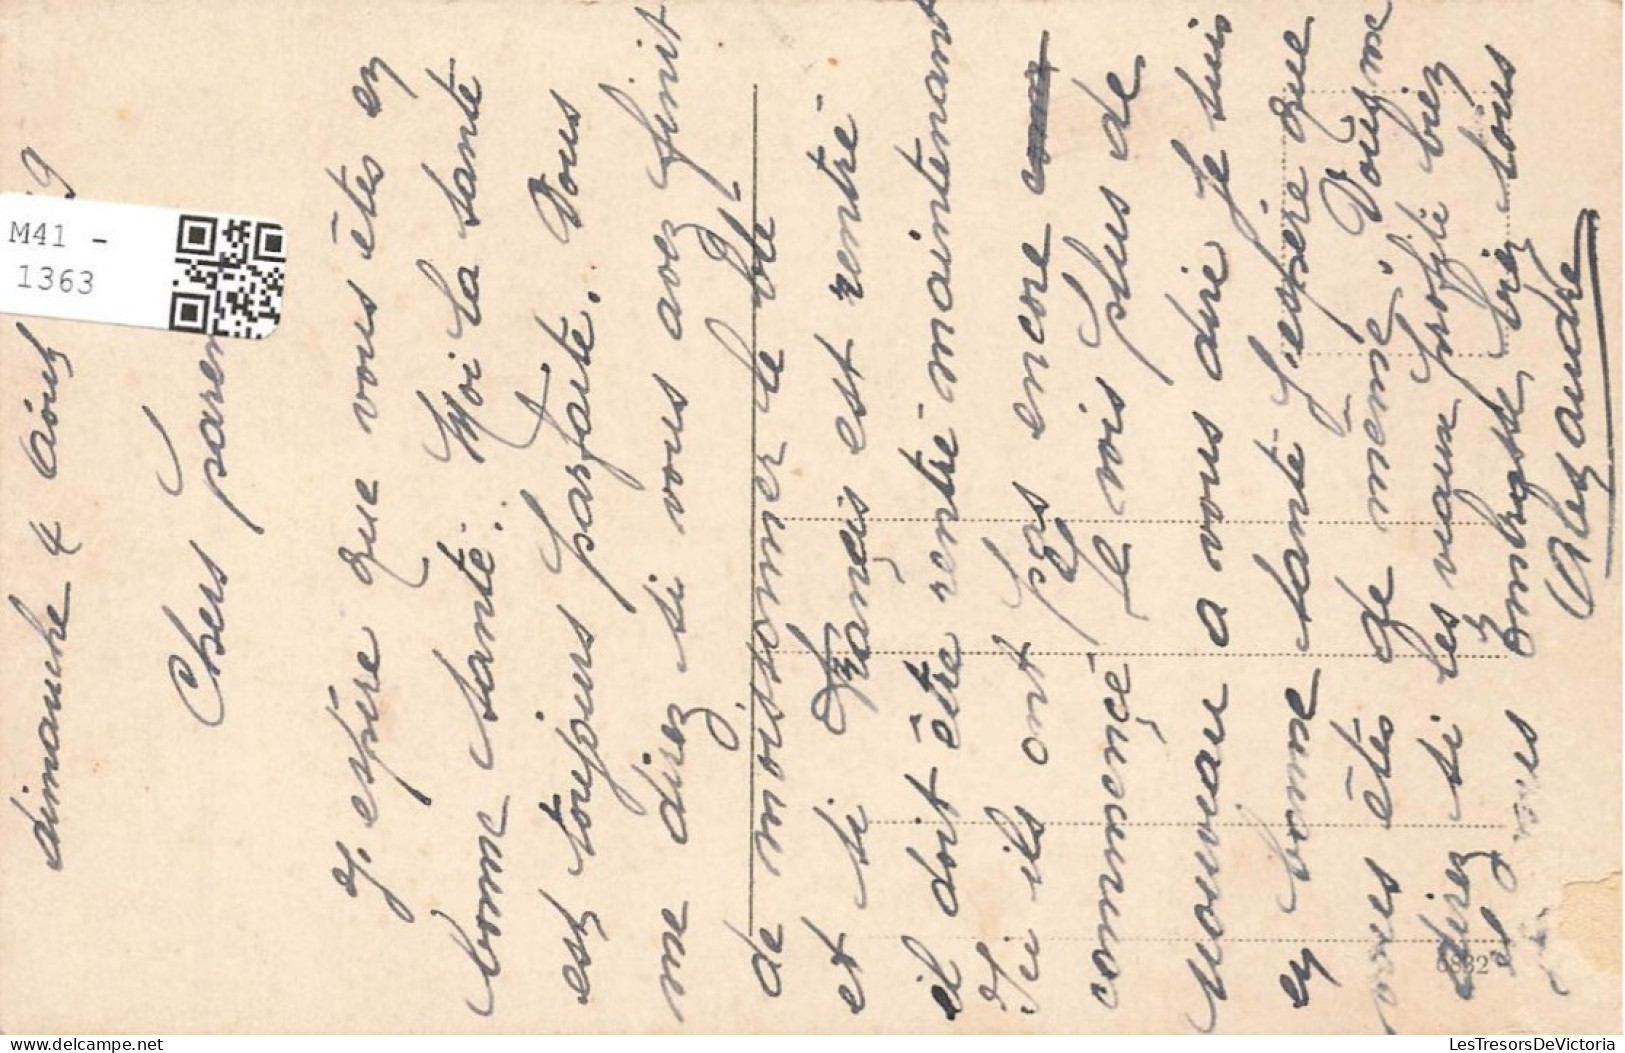 dimanche 4 Août 19
Chers paren
J. espére que vous êtes en
bonne santé. Moi la santé
est toujours parfaite. Vous
me direz si vous avez finit
de moissonner le blé
et si Français est rentré
il doit être rentré maintenant
Ici ils ont pas encore
commencé Je vois plus de
nouveau a vous dire je suis
en bonne santé j'espére que
vous êtes de même. Vous me
direz si les veaux profite bien
Je vous embrasse bien tous
Alexandre
M41 -
1363
6882
LesTresorsDeVictoria
delcampe.net